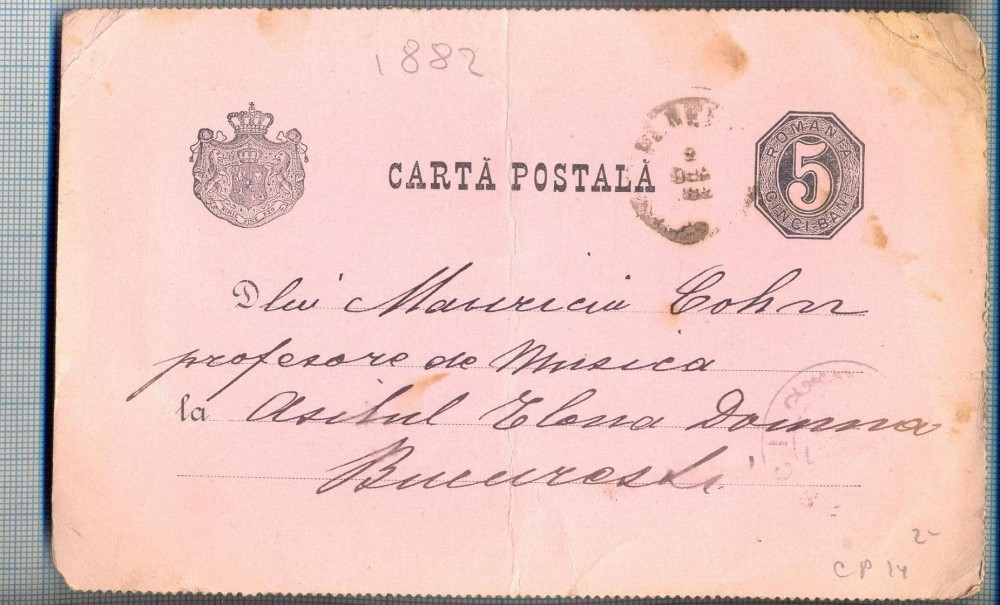 1882
CARTĂ POSTALĂ
ROMANIA
5
CINCI BANI
Dlui Mauriciu Cohn
profesore de Musica
la Asilul Elena Domna
Bucuresti
2-
CP 14